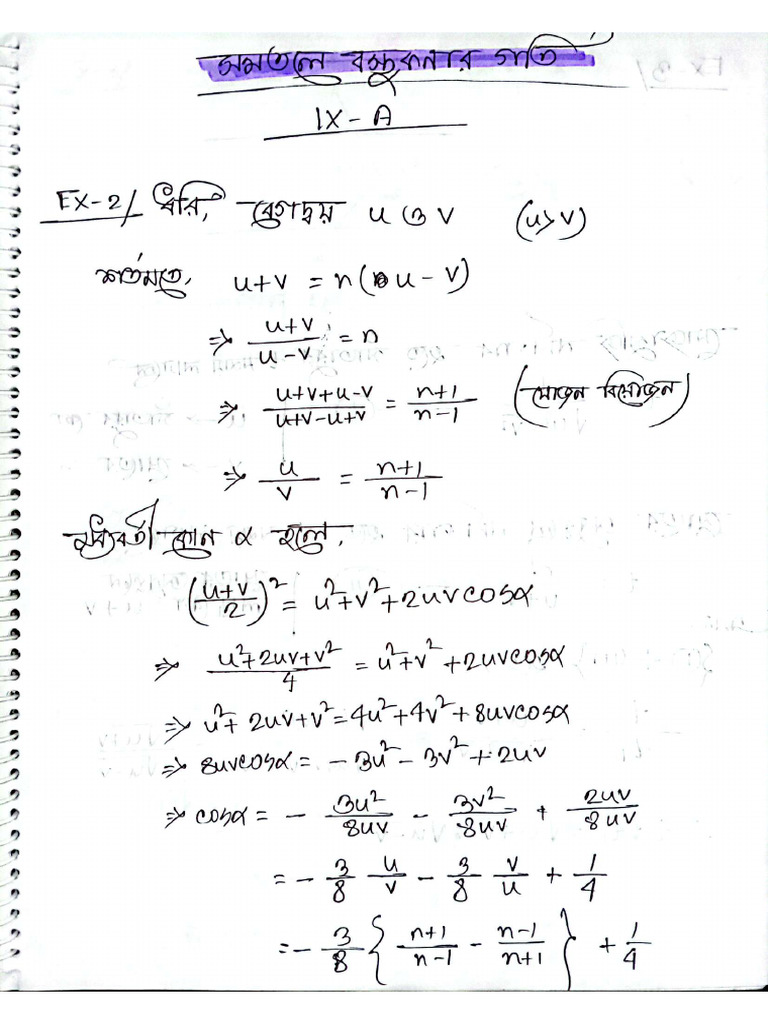 সমতলে বস্তুকনার গতি
IX-A
EX-2/ ধরি, বেগদ্বয় u ও v (u>v)
শর্তমতে, u+v = n(u-v)
⇒ (u+v)/(u-v) = n
⇒ (u+v+u-v)/(u+v-u+v) = (n+1)/(n-1) (যোজন বিয়োজন)
⇒ u/v = (n+1)/(n-1)
মধ্যবর্তী কোন α হলে,
((u+v)/2)² = u²+v²+2uvcosα
⇒ (u²+2uv+v²)/4 = u²+v²+2uvcosα
⇒ u²+2uv+v²=4u²+4v²+8uvcosα
⇒ 8uvcosα = -3u²-3v²+2uv
⇒ cosα = - 3u²/8uv - 3v²/8uv + 2uv/8uv
= - 3/8 u/v - 3/8 v/u + 1/4
= - 3/8 { (n+1)/(n-1) - (n-1)/(n+1) } + 1/4